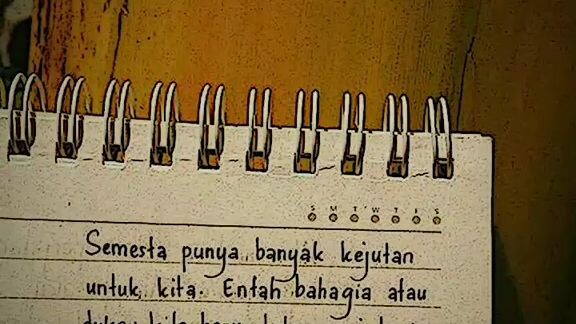 S M T W T F S
Semesta punya banyak kejutan
untuk kita. Entah bahagia atau